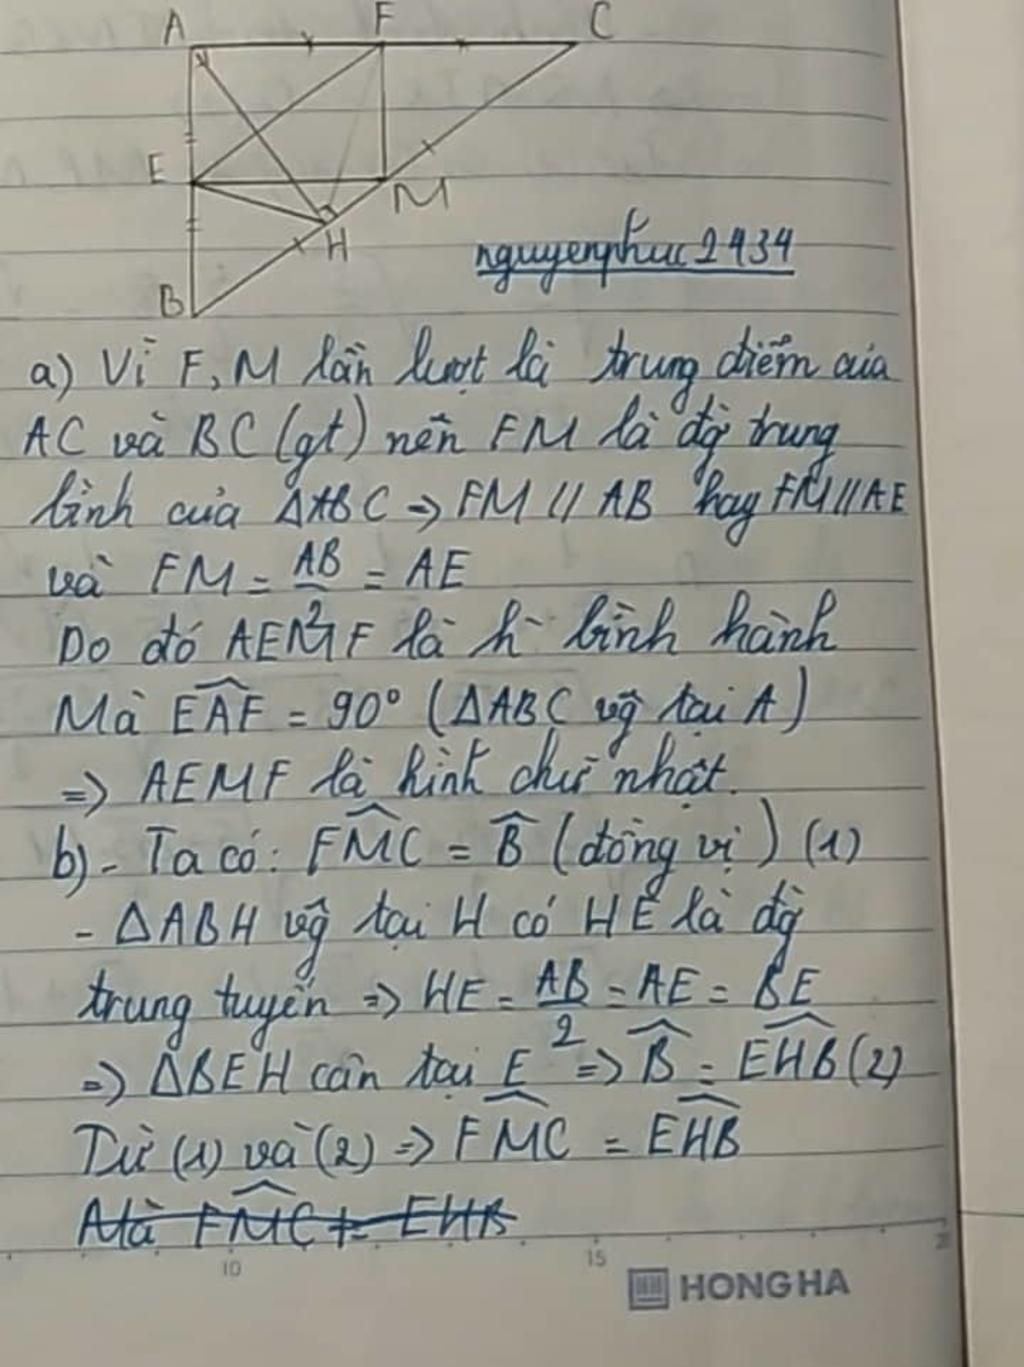 A F C
E M
H
B
nguyenphuc2434
a) Vì F, M lần lượt là trung điểm của
AC và BC (gt) nên FM là đg̀ trung
bình của ΔABC => FM // AB hay FM // AE
và FM = AB/2 = AE
Do đó AEMF là h̀ bình hành
Mà EAF̂ = 90° (ΔABC vg̃ tại A)
=> AEMF là hình chữ nhật.
b) - Ta có: FMĈ = B̂ (đồng vị) (1)
- ΔABH vg̃ tại H có HE là đg̀
trung tuyến => HE = AB/2 = AE = BE
=> ΔBEH cân tại E => B̂ = EHB̂ (2)
Từ (1) và (2) => FMĈ = EHB̂
Mà FMĈ + EHB
10 15
HONG HA